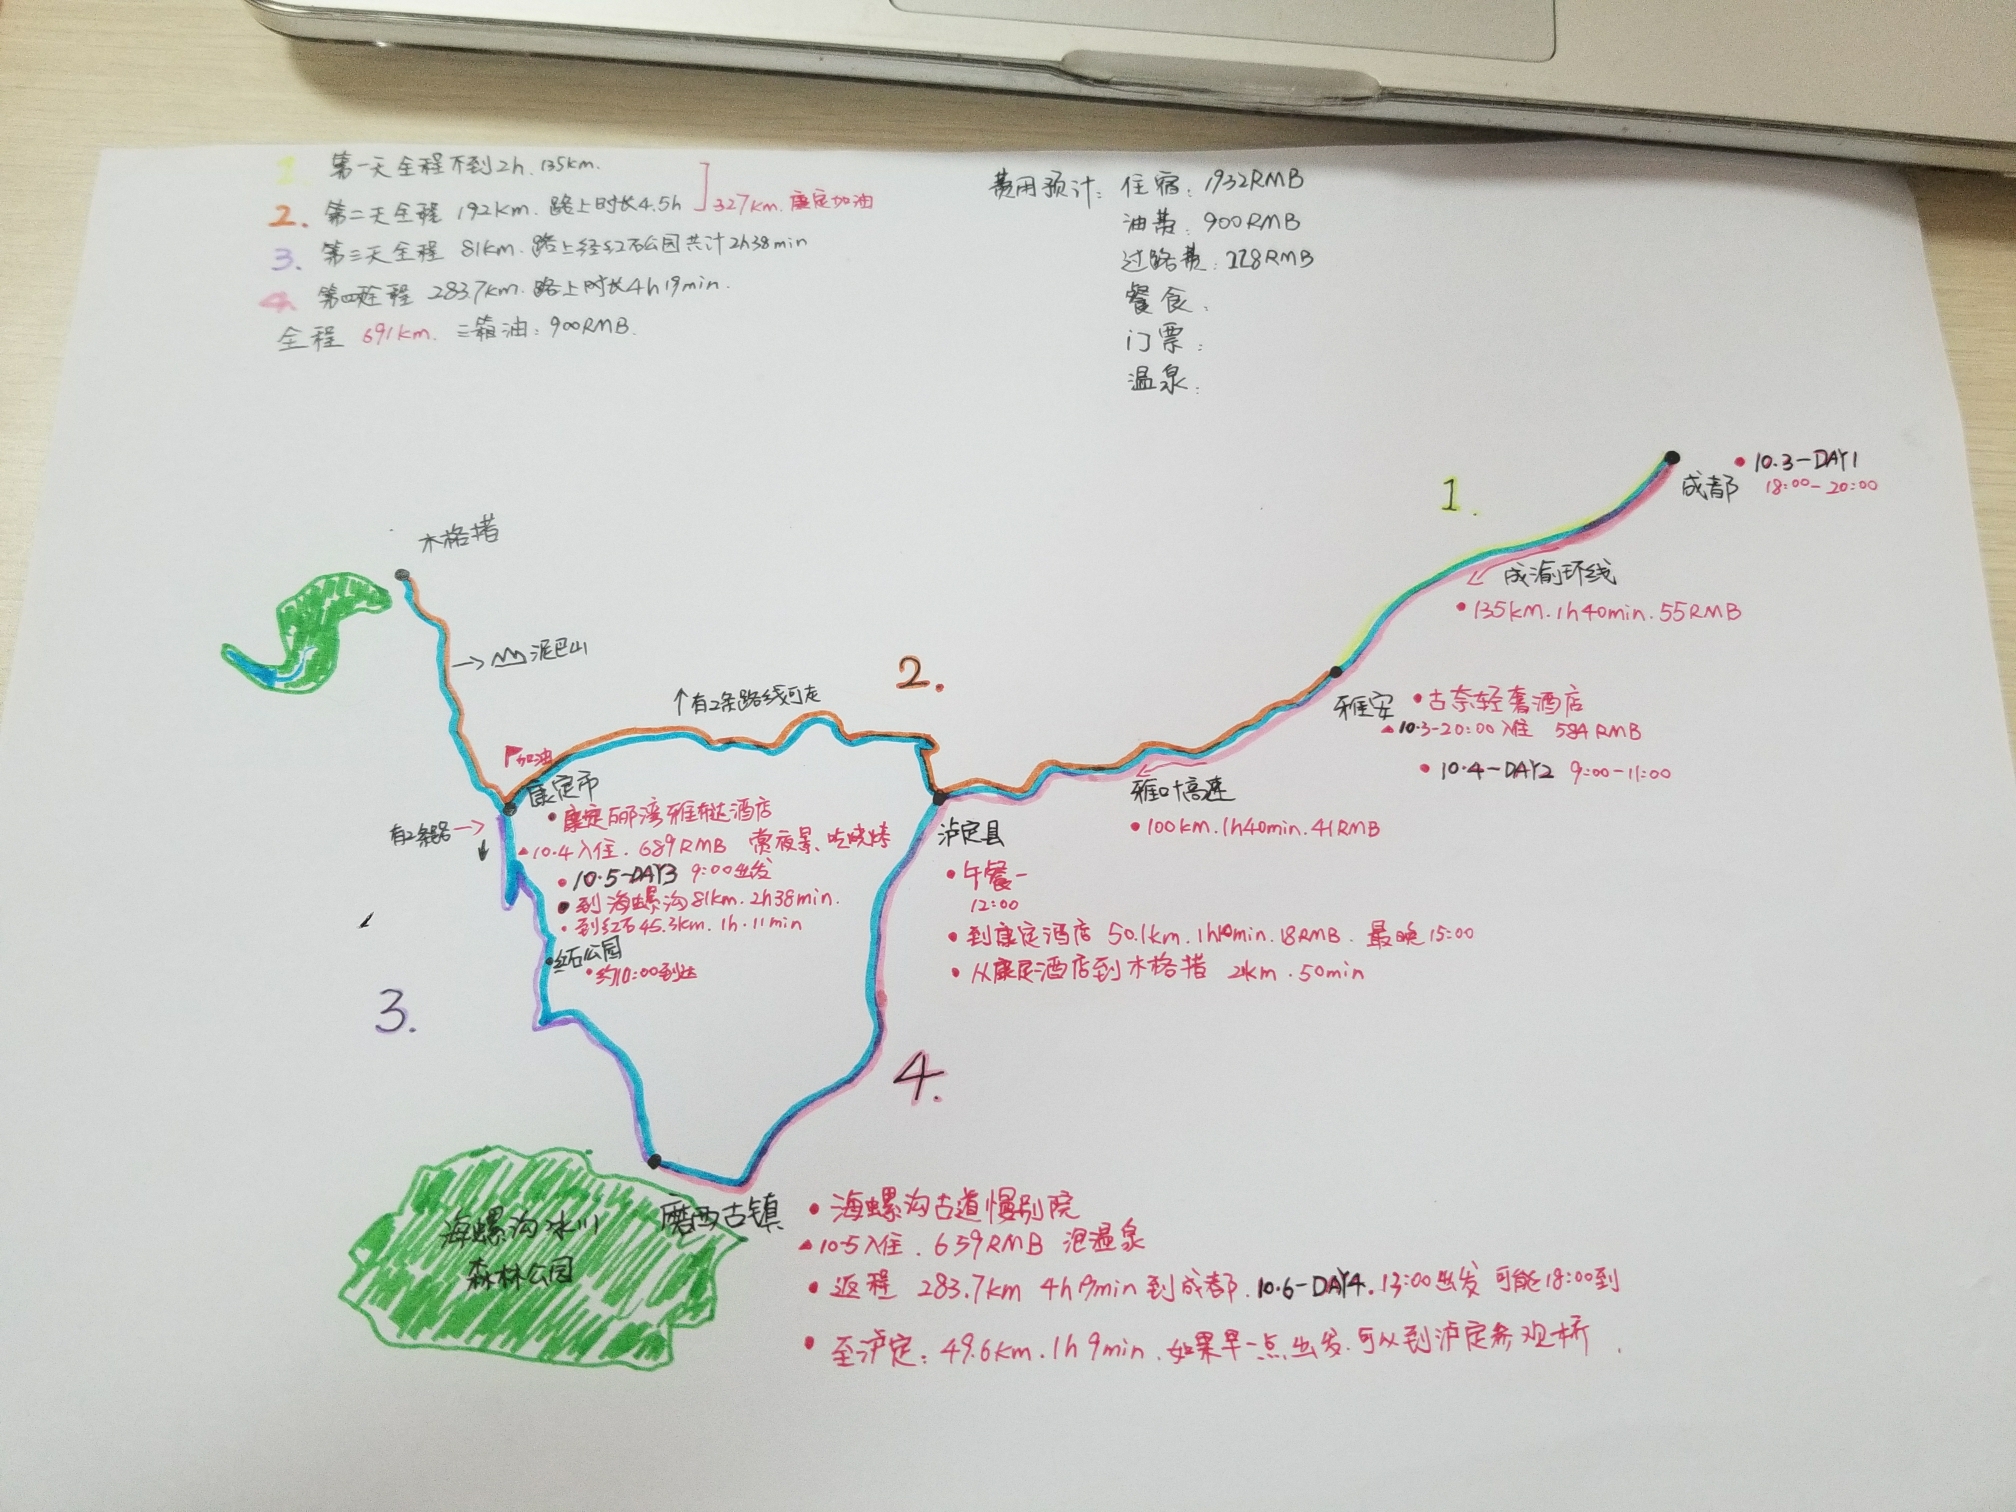 1. 第一天全程不到2h.135km.
2. 第二天全程 192km.路上时长4.5h
327km.康定加油
3. 第三天全程 81km.路上经红石公园共计2h38min
4. 第四天全程 283.7km.路上时长4h19min.
全程 691km. 三箱油:900RMB.
费用预计: 住宿: 1932RMB
油费: 900RMB
过路费: 228RMB
餐食:
门票:
温泉:
• 10.3-DAY1
成都 18:00-20:00
1.
成渝环线
• 135km.1h40min.55RMB
木格措
→ 泥巴山
↑有2条路线可走
2.
雅安 • 古奈轻奢酒店
10.3-20:00入住 584RMB
• 10.4-DAY2 9:00-11:00
雅叶高速
• 100km.1h40min.41RMB
加油
康定市
• 康定丽湾雅致酒店
10.4入住.689RMB 赏夜景、吃烧烤
• 10.5-DAY3 9:00出发
• 到海螺沟81km.2h38min.
• 到红石45.3km.1h.11min
有2条路→
红石公园
• 约10:00到达
泸定县
• 午餐-
12:00
• 到康定酒店 50.1km.1h10min.18RMB. 最晚15:00
• 从康定酒店到木格措 21km.50min
3.
4.
海螺沟冰川
森林公园
磨西古镇 • 海螺沟古道慢别院
10.5入住.659RMB 泡温泉
• 返程 283.7km 4h19min到成都.10.6-DAY4.13:00出发 可能18:00到
• 至泸定:49.6km.1h9min.如果早一点出发.可以到泸定参观桥.